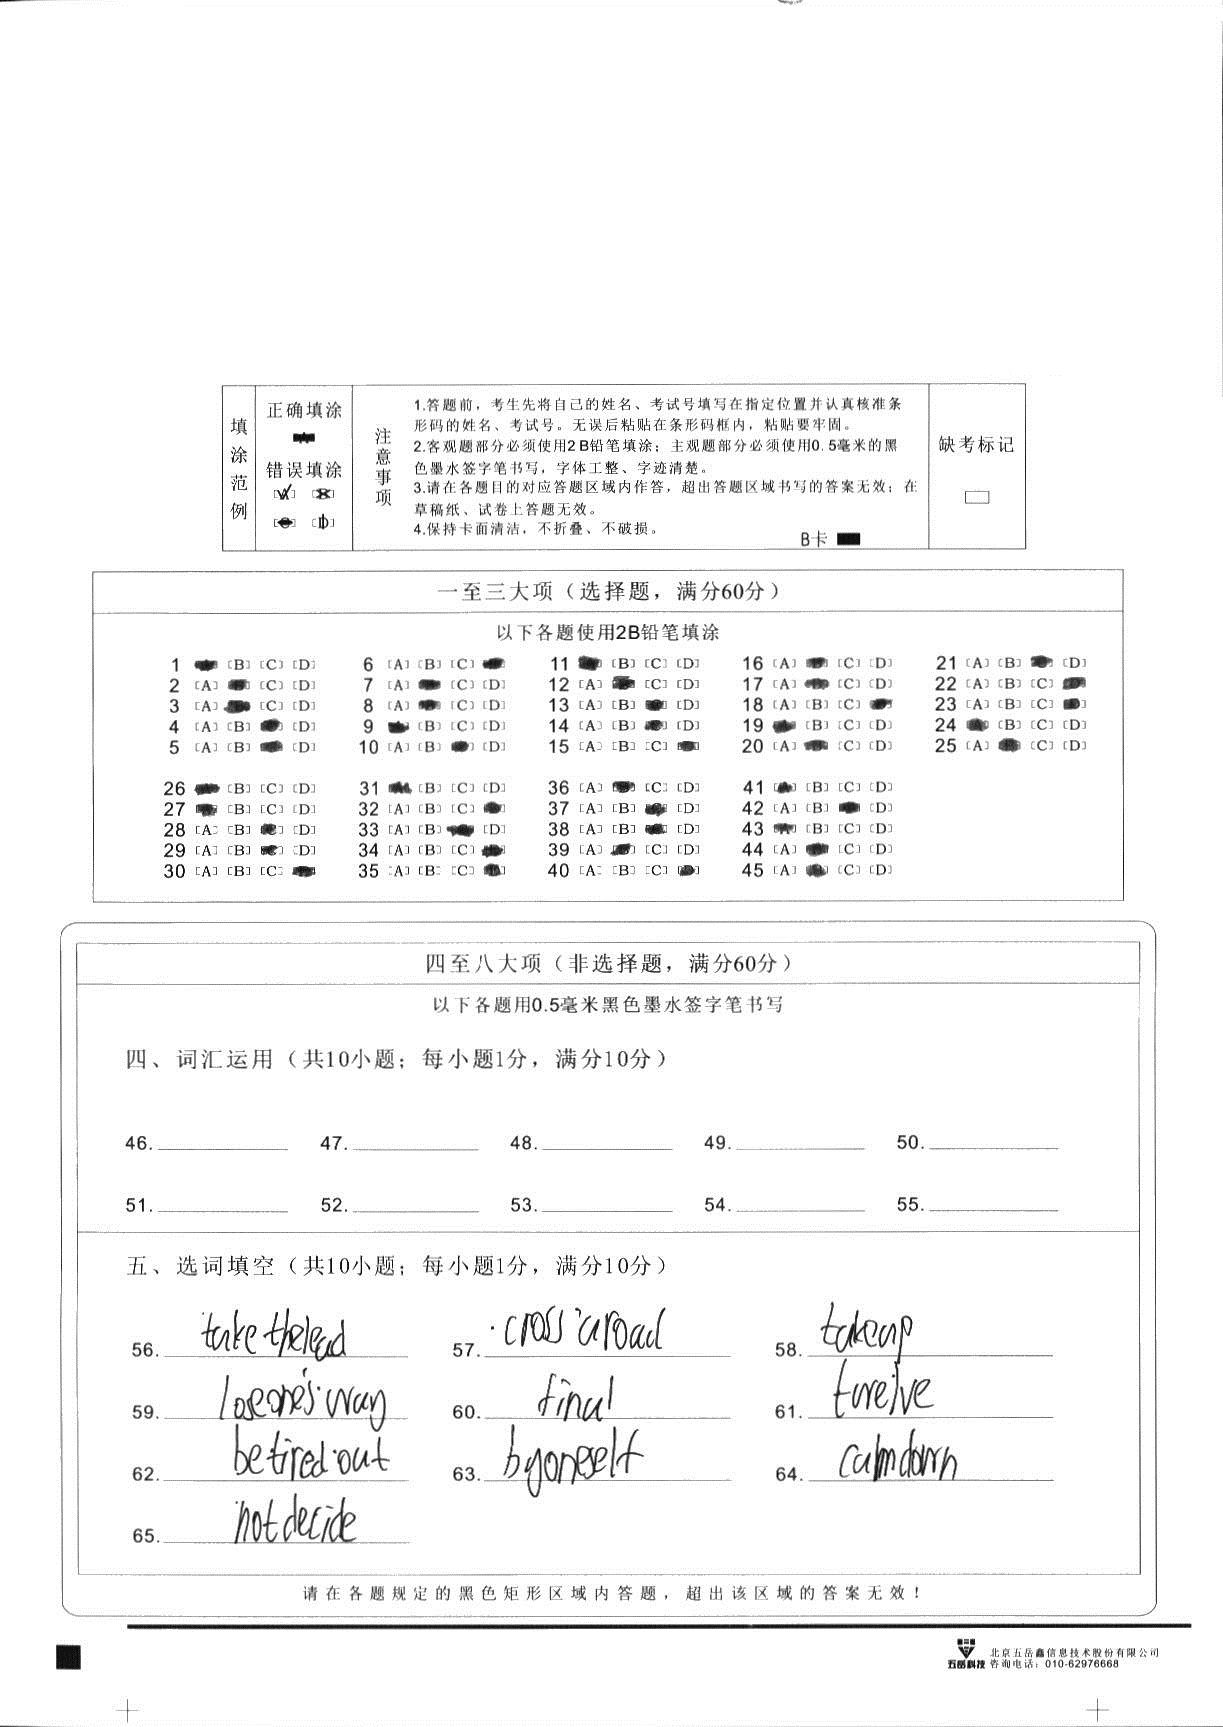 填涂范例
正确填涂
错误填涂
注意事项
1.答题前，考生先将自己的姓名、考试号填写在指定位置并认真核准条
形码的姓名、考试号。无误后粘贴在条形码框内，粘贴要牢固。
2.客观题部分必须使用2B铅笔填涂；主观题部分必须使用0.5毫米的黑
色墨水签字笔书写，字体工整、字迹清楚。
3.请在各题目的对应答题区域内作答，超出答题区域书写的答案无效；在
草稿纸、试卷上答题无效。
4.保持卡面清洁，不折叠、不破损。
B卡
缺考标记
一至三大项（选择题，满分60分）
以下各题使用2B铅笔填涂
1 [B] [C] [D] 6 [A] [B] [C] 11 [B] [C] [D] 16 [A] [C] [D] 21 [A] [B] [D]
2 [A] [C] [D] 7 [A] [C] [D] 12 [A] [C] [D] 17 [A] [C] [D] 22 [A] [B] [C]
3 [A] [C] [D] 8 [A] [C] [D] 13 [A] [B] [D] 18 [A] [B] [C] 23 [A] [B] [C]
4 [A] [B] [D] 9 [B] [C] [D] 14 [A] [B] [D] 19 [B] [C] [D] 24 [B] [C] [D]
5 [A] [B] [D] 10 [A] [B] [D] 15 [A] [B] [C] 20 [A] [C] [D] 25 [A] [C] [D]
26 [B] [C] [D] 31 [B] [C] [D] 36 [A] [C] [D] 41 [B] [C] [D]
27 [B] [C] [D] 32 [A] [B] [C] 37 [A] [B] [D] 42 [A] [B] [D]
28 [A] [B] [D] 33 [A] [B] [D] 38 [A] [B] [D] 43 [B] [C] [D]
29 [A] [B] [D] 34 [A] [B] [C] 39 [A] [C] [D] 44 [A] [C] [D]
30 [A] [B] [C] 35 [A] [B] [C] 40 [A] [B] [C] 45 [A] [C] [D]
四至八大项（非选择题，满分60分）
以下各题用0.5毫米黑色墨水签字笔书写
四、词汇运用（共10小题；每小题1分，满分10分）
46. 47. 48. 49. 50.
51. 52. 53. 54. 55.
五、选词填空（共10小题；每小题1分，满分10分）
56. take the lead 57. cross a road 58. take up
59. lose one's way 60. final 61. twelve
62. be tired out 63. by oneself 64. calm down
65. not decide
请在各题规定的黑色矩形区域内答题，超出该区域的答案无效！
五岳科技
北京五岳鑫信息技术股份有限公司
咨询电话：010-62976668